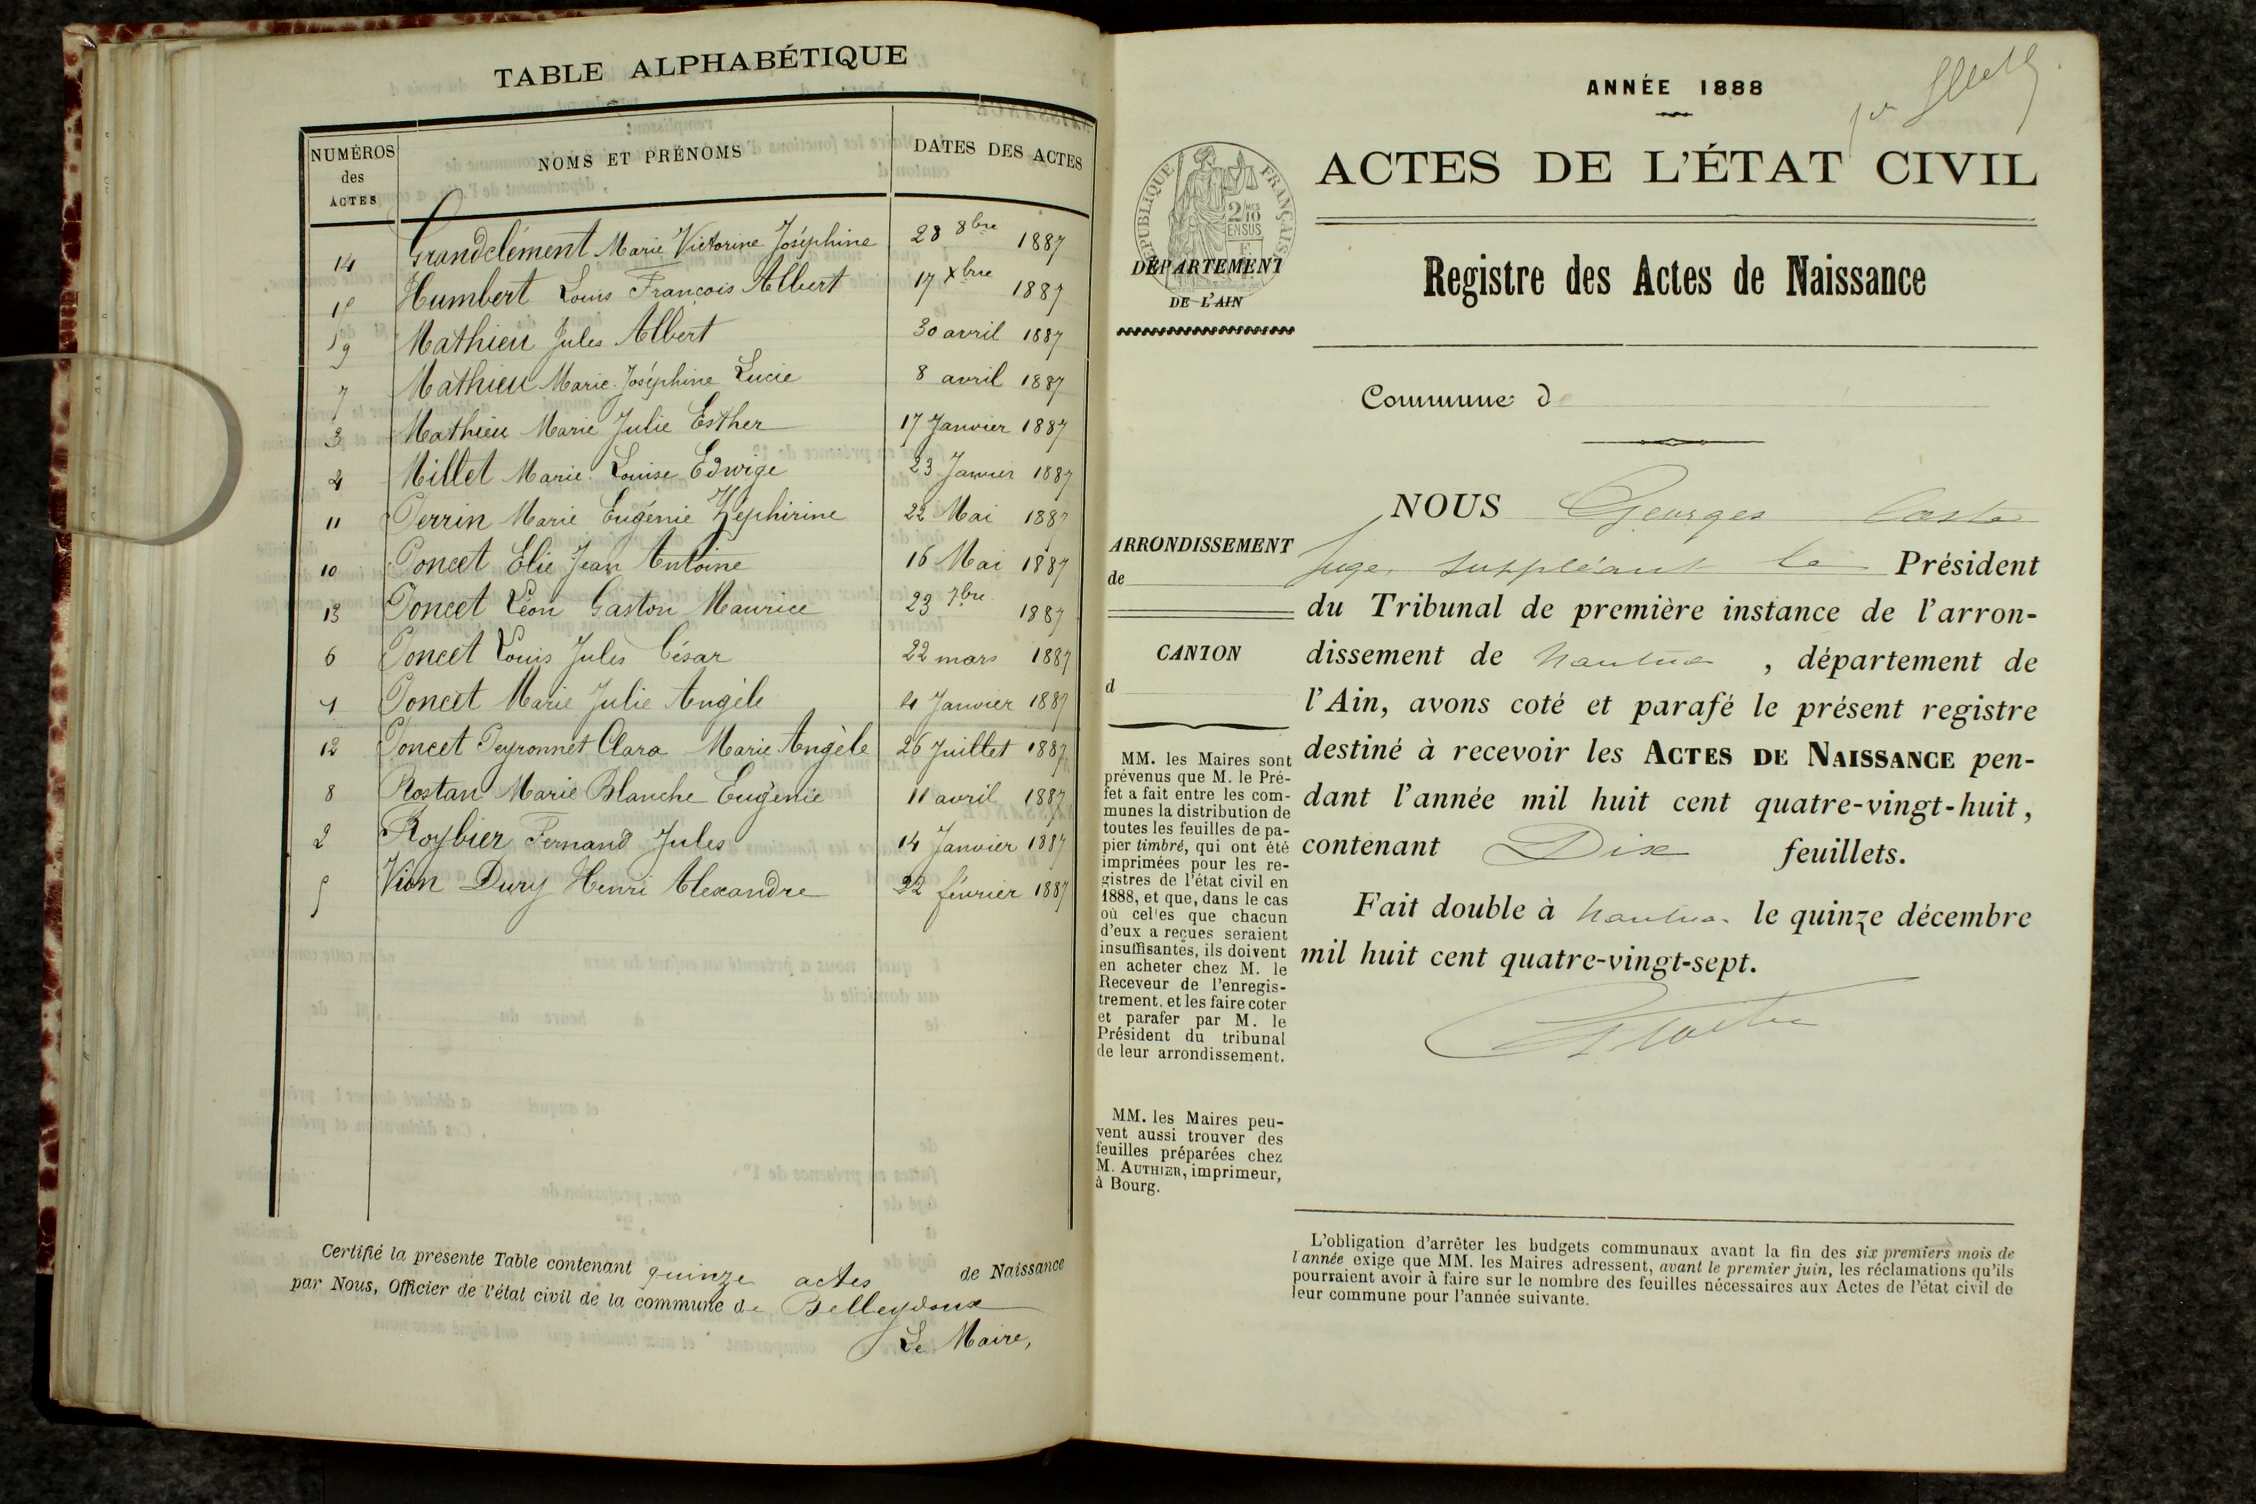 TABLE ALPHABÉTIQUE
NUMÉROS des ACTES NOMS ET PRÉNOMS DATES DES ACTES
14 Grandclément Marie Victorine Joséphine 28 8bre 1887
15 Humbert Louis François Albert 17 Xbre 1887
9 Mathieu Jules Albert 30 avril 1887
7 Mathieu Marie Joséphine Lucie 8 avril 1887
3 Mathieu Marie Julie Esther 17 Janvier 1887
4 Millet Marie Louise Edwige 23 Janvier 1887
11 Perrin Marie Eugénie Zéphirine 22 Mai 1887
10 Poncet Elie Jean Antoine 16 Mai 1887
13 Poncet Léon Gaston Maurice 23 7bre 1887
6 Poncet Louis Jules César 22 mars 1887
1 Poncet Marie Julie Angèle 4 Janvier 1887
12 Poncet Peyronnet Clara Marie Angèle 26 Juillet 1887
8 Rostan Marie Blanche Eugénie 11 avril 1887
2 Roybier Fernand Jules 14 Janvier 1887
5 Vion Dury Henri Alexandre 22 février 1887
Certifié la presente Table contenant quinze actes de Naissance
par Nous, Officier de l'état civil de la commune de Belleydoux
Le Maire,
ANNÉE 1888
ACTES DE L'ÉTAT CIVIL
Registre des Actes de Naissance
RÉPUBLIQUE FRANÇAISE
2 MES
10
EN SUS
DÉPARTEMENT
DE L'AIN
Commune de
ARRONDISSEMENT
de
CANTON
d
MM. les Maires sont
prévenus que M. le Pré-
fet a fait entre les com-
munes la distribution de
toutes les feuilles de pa-
pier timbré, qui ont été
imprimées pour les re-
gistres de l'état civil en
1888, et que, dans le cas
où cel'es que chacun
d'eux a reçues seraient
insuffisantes, ils doivent
en acheter chez M. le
Receveur de l'enregis-
trement. et les faire coter
et parafer par M. le
Président du tribunal
de leur arrondissement.
MM. les Maires peu-
vent aussi trouver des
feuilles préparées chez
M. AUTHIER, imprimeur,
à Bourg.
NOUS Georges
Juge suppléant le Président
du Tribunal de première instance de l'arron-
dissement de Nantua , département de
l'Ain, avons coté et parafé le présent registre
destiné à recevoir les ACTES DE NAISSANCE pen-
dant l'année mil huit cent quatre-vingt-huit,
contenant Dix feuillets.
Fait double à Nantua le quinze décembre
mil huit cent quatre-vingt-sept.
L'obligation d'arrêter les budgets communaux avant la fin des six premiers mois de
l'année exige que MM. les Maires adressent, avant le premier juin, les réclamations qu'ils
pourraient avoir à faire sur le nombre des feuilles nécessaires aux Actes de l'état civil de
leur commune pour l'année suivante.